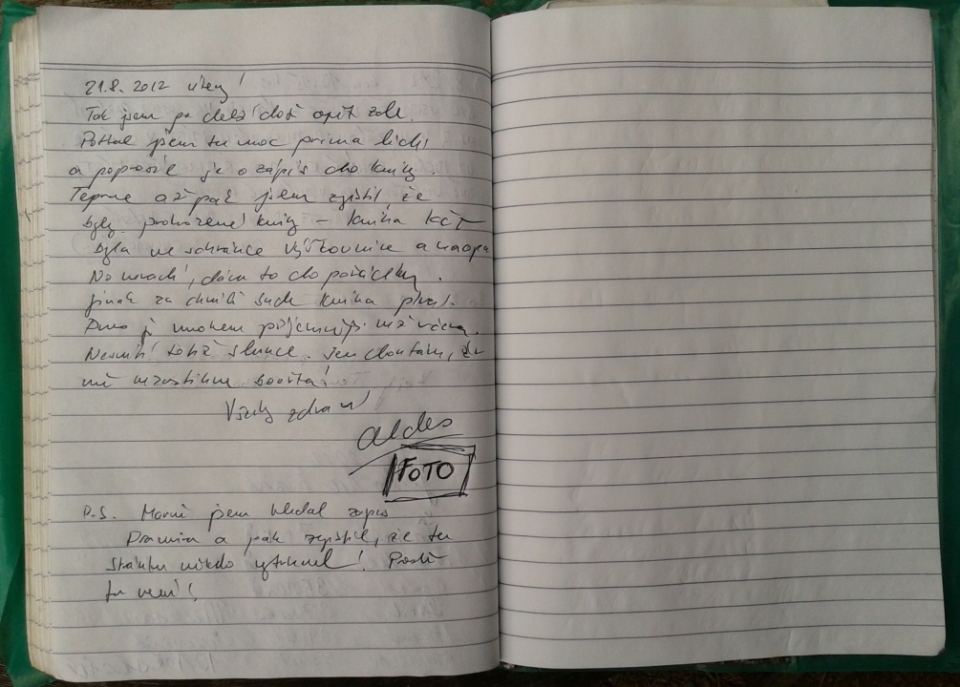 21.8. 2012 úterý!
Tak jsem po delší době opět zde.
Potkal jsem tu moc prima lidi
a poprosil je o zápis do knihy.
Teprve až pak jsem zjistil, že
byly prohozené knihy - kniha KČT
byla ve schránce výškovnice a naopa
No nevadí, dám to do pořádku.
Jinak za chvíli bude kniha plná.
Dnes je mnohem příjemněji než včera.
Nesvítí totiž slunce. Jen doufám, že
mě nezastihne bouřka!
Všechny zdraví
Aldes
FOTO
P.S. Marně jsem hledal zápis
a pak zjistil, že tu
stránku někdo vytrhnul! Prostě
tu není!